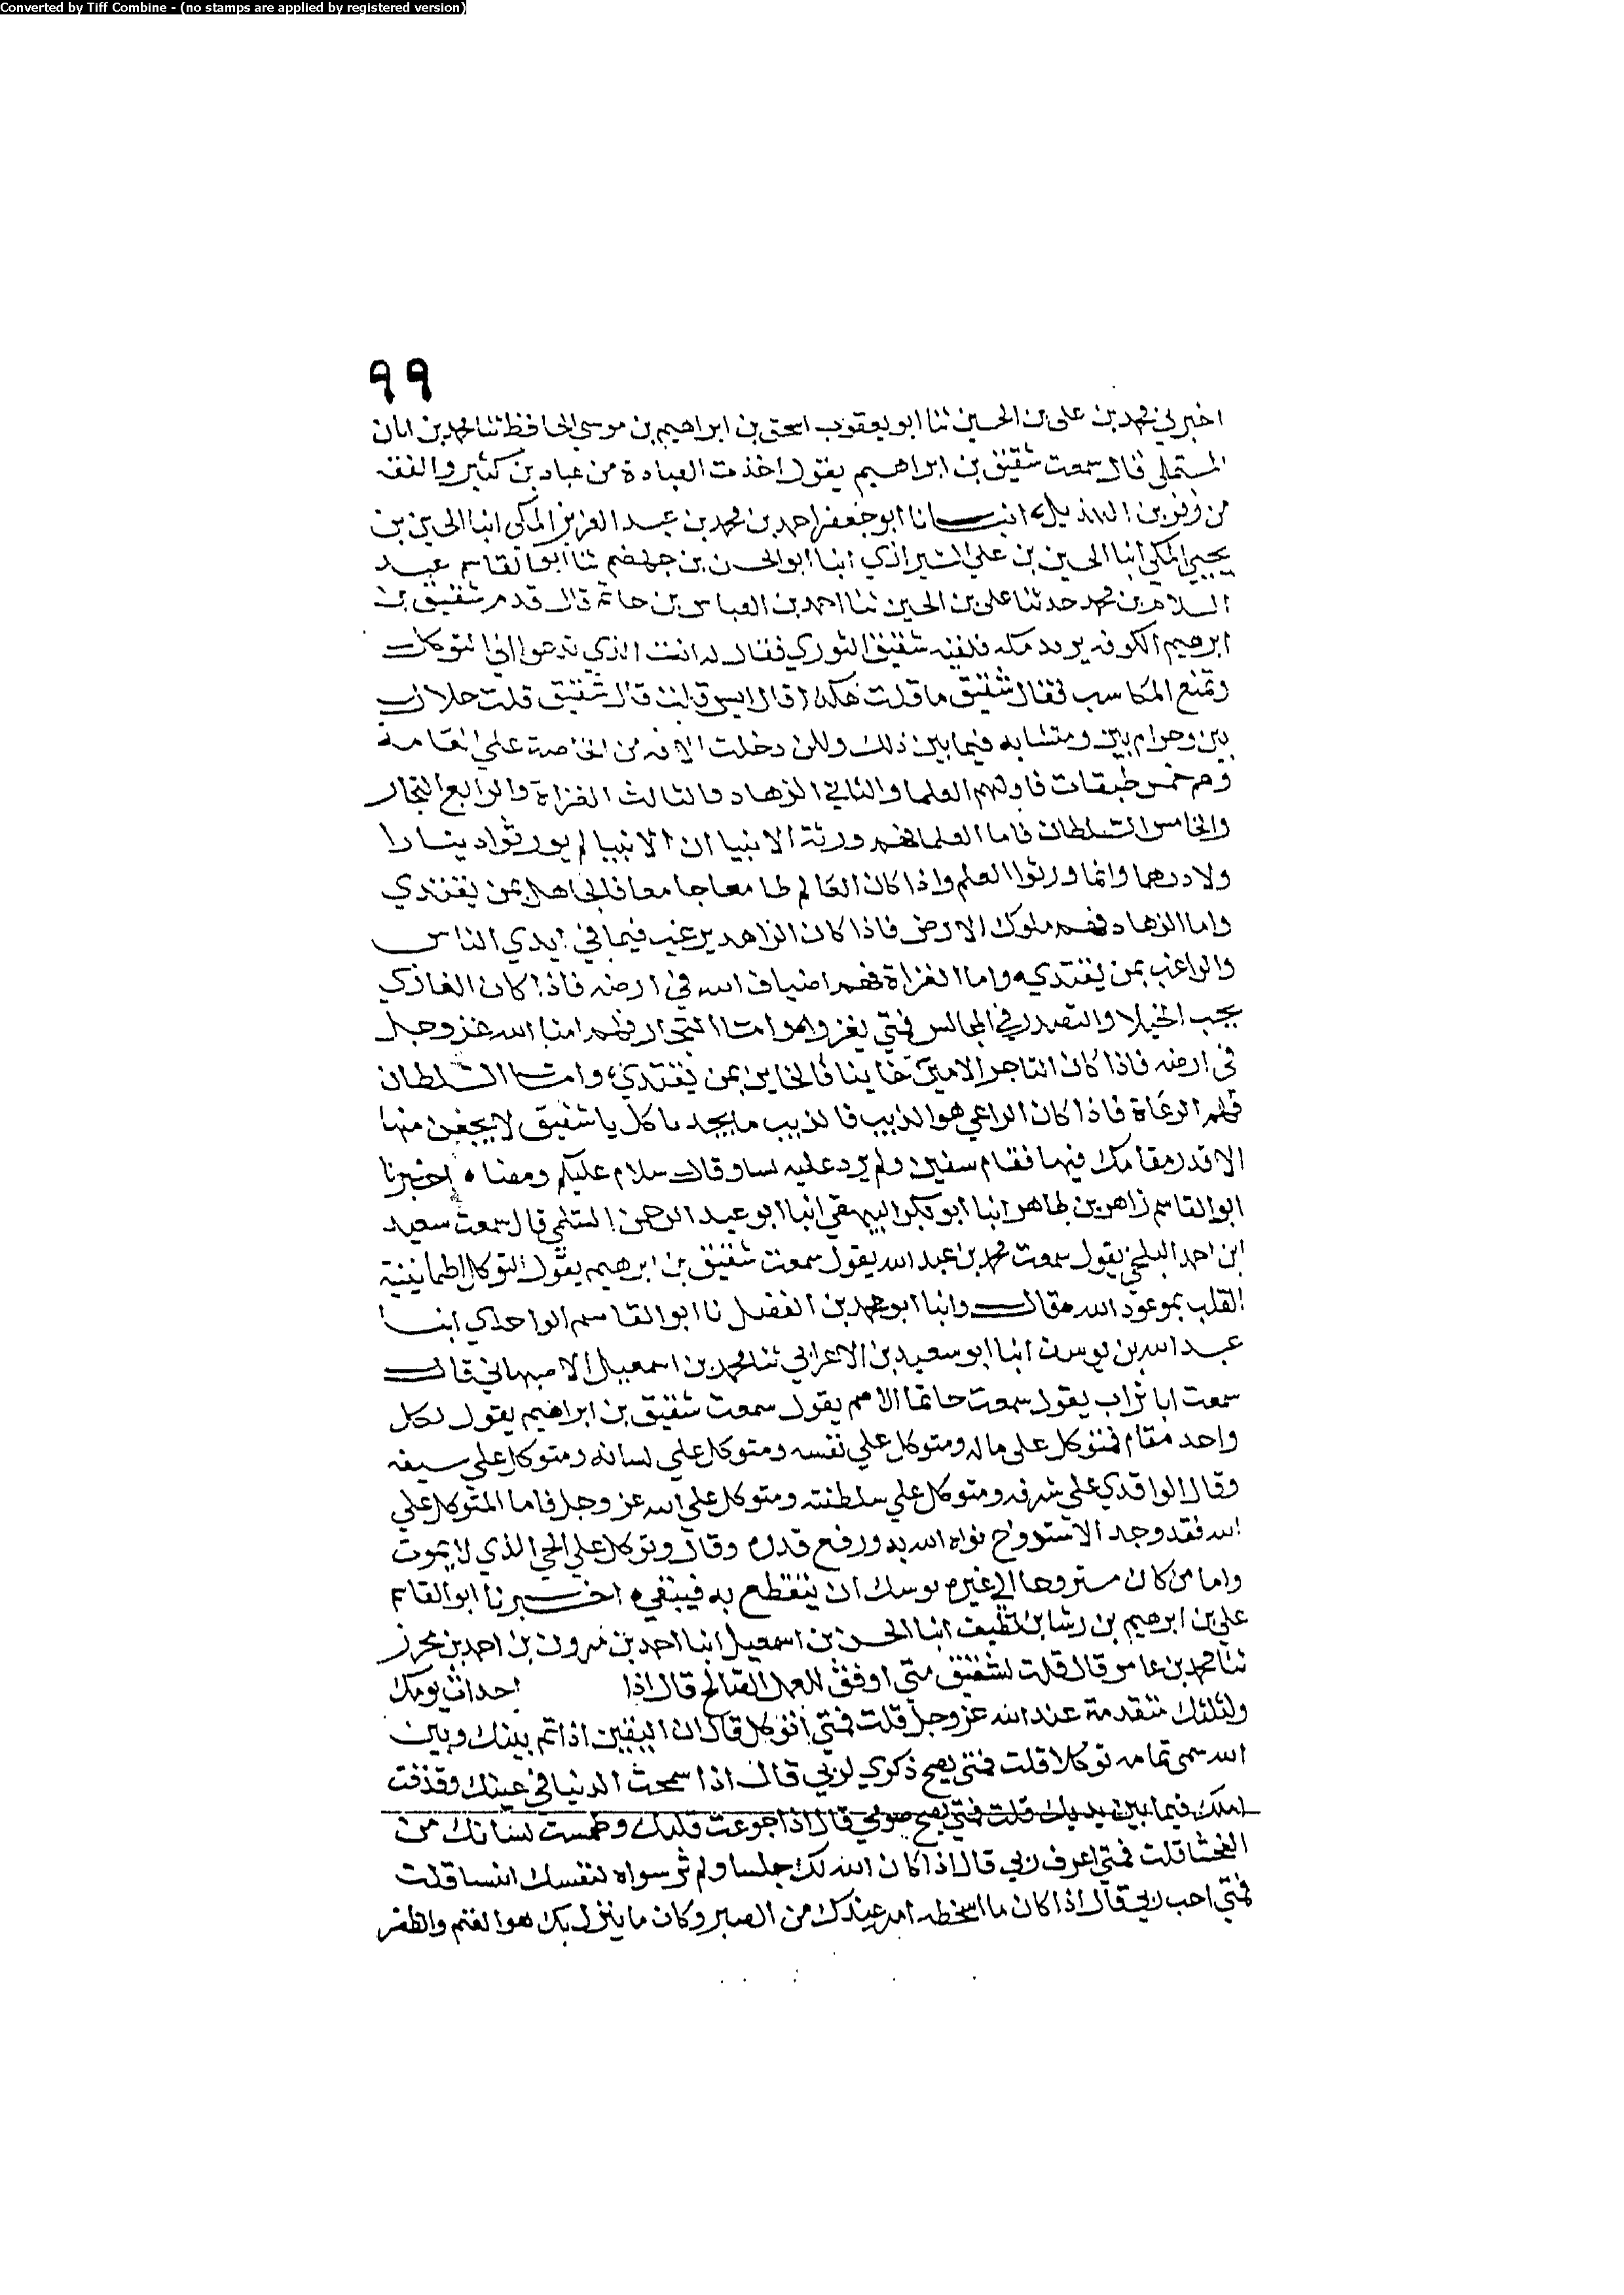 Converted by Tiff Combine - (no stamps are applied by registered version)
٩٩
اخبرني محمد بن علي بن الحسين ثنا ابو يعقوب اسحق بن ابراهيم بن موسي الحافظ ثنا محمد بن ابان
المستملي قال سمعت شقيق بن ابراهيم يقول اخذت العبادة من عباد بن كثير والفقه
من زفر بن الهذيل انبانا ابو جعفر احمد بن محمد بن عبد العزيز المكي انبا الحسين بن
يحيي المكي انبا الحسين بن علي الشيرازي انبا ابو الحسن بن جهضم ثنا ابو القاسم عبد
السلام بن محمد حدثنا علي بن الحسين ثنا احمد بن العباس بن حاتم قال قدم شقيق بن
ابرهيم الكوفه يريد مكه فلقيه شقيق الثوري فقال له انت الذي تدعوا الي التوكل
وتمنع المكاسب فقال شقيق ما قلت هكذا قال ايس قلت قال شقيق قلت حلال
بين وحرام بين ومتشابه فيما بين ذلك ولكن دخلت الافه من الخاصة علي العامة
وهم خمس طبقات فاولهم العلما والثاني الزهاد والثالث الغزاة والرابع التجار
والخامس السلطان فاما العلما فهم ورثة الانبيا ان الانبيا لم يورثوا دينارا
ولا درهما وانما ورثوا العلم واذا كان العالم طامعا جامعا فالجاهل بمن يقتدي
واما الزهاد فهم ملوك الارض فاذا كان الزاهد يرغب فيما في ايدي الناس
والراغب بمن يقتدي واما الغزاة فهم اضياف الله في ارضه فاذا كان الغازي
يحب الخيلا والتصدر في المجالس فمتي يغزوا واما التجار فهم امنا الله عز وجل
في ارضه فاذا كان التاجر الامين خاينا فالخاين بمن يقتدي واما السلطان
فهم الرعاة فاذا كان الراعي هو الذيب فالذيب ما يجد ماكل يا شقيق لا تبغين منها
الا قدر مقامك فيها فقام سفين ولم يرد عليه سا وقال سلام عليكم ومضا اخبرنا
ابو القاسم زاهر بن طاهر انبا ابو بكر البيهقي انبا ابو عبد الرحمن السلمي قال سمعت سعيد
ابن احمد البلخي يقول سمعت محمد بن عبد الله يقول سمعت شقيق بن ابرهيم يقول التوكل طمانينة
القلب بموعود الله مقال وانبا ابو محمد بن الفضل نا ابو القاسم الواحدي انبا
عبد الله بن يوسف انبا ابو سعيد بن الاعرابي ثنا محمد بن اسمعيل الاصبهاني قال
سمعت ابا تراب يقول سمعت حاتما الاصم يقول سمعت شقيق بن ابراهيم يقول لكل
واحد مقام فمتوكل علي ماله ومتوكل علي نفسه ومتوكل علي لسانه ومتوكل علي سيفه
وقال الواقدي علي شرفه ومتوكل علي سلطنته ومتوكل علي الله عز وجل فاما المتوكل علي
الله فقد وجد الاسترواح نواه الله به ورفع قدره وقال وتوكل علي الحي الذي لا يموت
واما من كان مستروحا الي غيره يوسك ان ينقطع به فيبقي اخبرنا ابو القاسم
علي بن ابرهيم بن رشا بن نظيف انبا الحسن بن اسمعيل انبا احمد بن مرون بن احمد بن محرز
ثنا محمد بن عامر قال قلت لشقيق متي اوفق للعمل الصالح قال اذا احداث يومك
وليلتك متقدمة عند الله عز وجل قلت فمتي اتوكل قال ان اليقين اذا تم بينك وبين
الله سمي تمامه توكلا قلت فمتي يصح ذكري لربي قال اذا سمجت الدنيا في عينك وقذفت
املك فيما بين يديك قلت فمتي يصح صومي قال اذا جوعت قلبك وطمست لسانك من
الفحشا قلت فمتي اعرف ربي قال اذا كان الله لك جليسا ولم تر سواه لنفسك انيسا قلت
فمتي احب ربي قال اذا كان ما اسخطه امر عندك من الصبر وكان ما ينزل بك هو الغنم والظفر